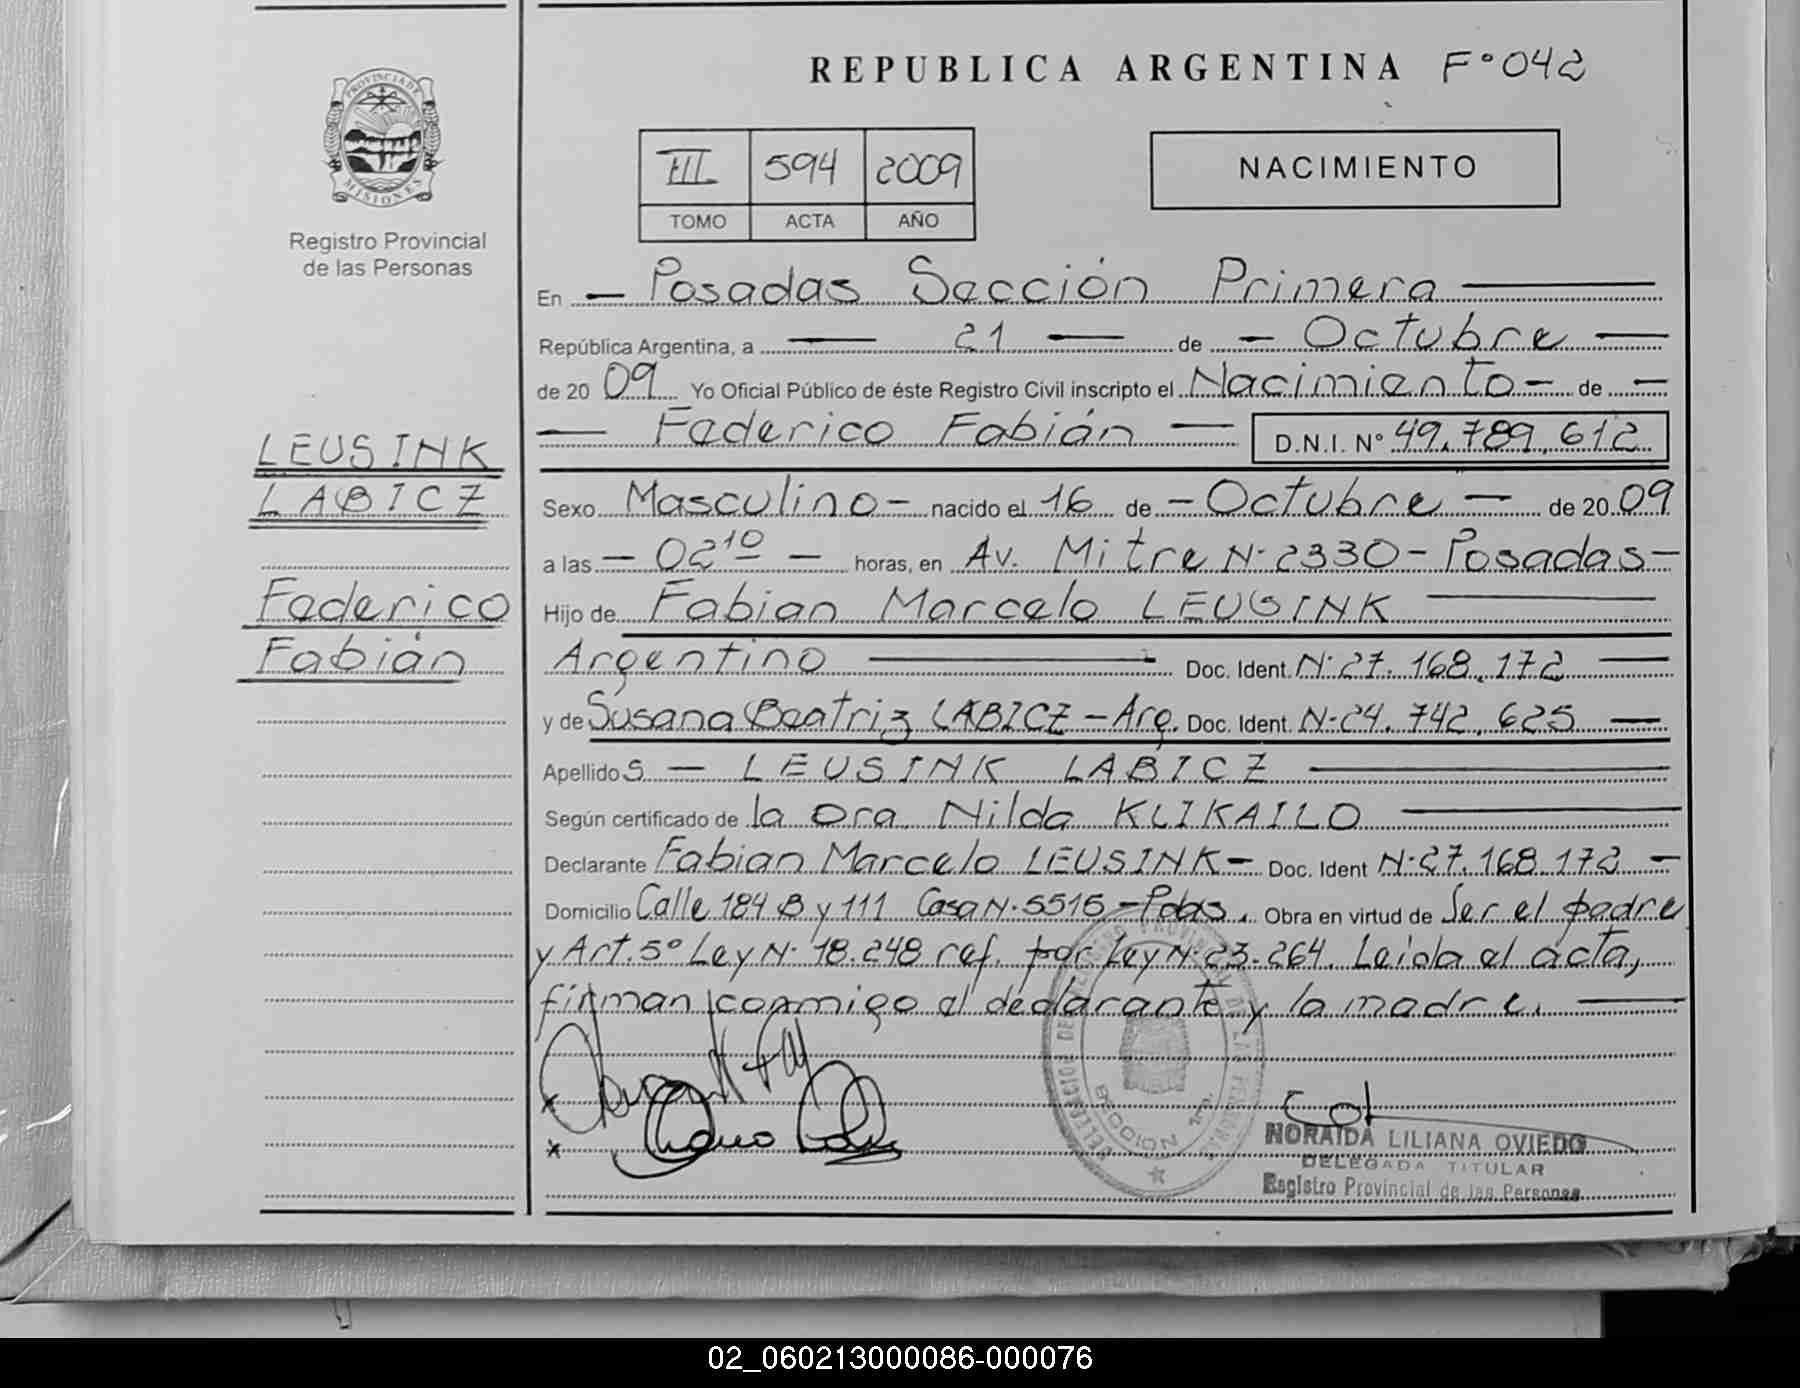 REPUBLICA ARGENTINA F° 042
PROVINCIA DE
MISIONES
Registro Provincial
de las Personas
III 594 2009
TOMO ACTA AÑO
NACIMIENTO
En — Posadas Sección Primera —
República Argentina, a — 21 — de — Octubre —
de 20 09 Yo Oficial Público de éste Registro Civil inscripto el Nacimiento — de —
— Federico Fabián — D.N.I. N° 49.789.612
LEUSINK
LABICZ
Federico
Fabián
Sexo Masculino — nacido el 16 de — Octubre — de 20 09
a las — 02¹⁰ — horas, en Av. Mitre N° 2330 - Posadas —
Hijo de Fabian Marcelo LEUSINK —
Argentino — Doc. Ident. N° 27.168.172 —
y de Susana Beatriz LABICZ — Arg. Doc. Ident. N° 24.742.625 —
Apellidos — LEUSINK LABICZ —
Según certificado de la Dra Nilda KLIKAILO —
Declarante Fabian Marcelo LEUSINK — Doc. Ident N° 27.168.172 —
Domicilio Calle 184 B y 111 Casa N° 5515 - Pdas. Obra en virtud de Ser el padre
y Art. 5° Ley N° 18.248 ref. por Ley N° 23.264. Leida el acta,
firman conmigo el declarante y la madre. —
SECCION 1ra.
NORAIDA LILIANA OVIEDO
DELEGADA TITULAR
Registro Provincial de las Personas
02_060213000086-000076